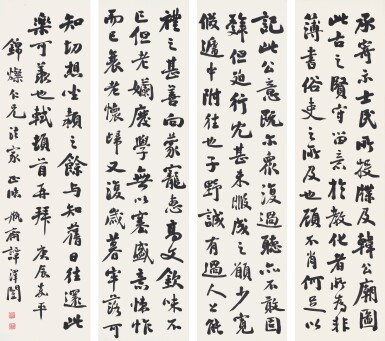 承寄示士民所投牒及韓公廟圖
此古之賢守留意於教化者所為非
簿書俗吏之所及也顧不肖何足以
記此公意既爾眾復過聽亦不敢固
辭但迫行冗甚未暇成之願少寬
假遞中附往也子野誠有過人公能
禮之甚善向蒙寵惠高文欽味不
已但老嬾廢學無以塞盛意愧怍
而已衰老懷歸又復歲暮牢落可
知切想坐嘯之餘與知舊日往還此
樂可羨也軾頓首再拜 庚辰嘉平
錦燦仁兄法家正臨 瓶齋譚澤闓